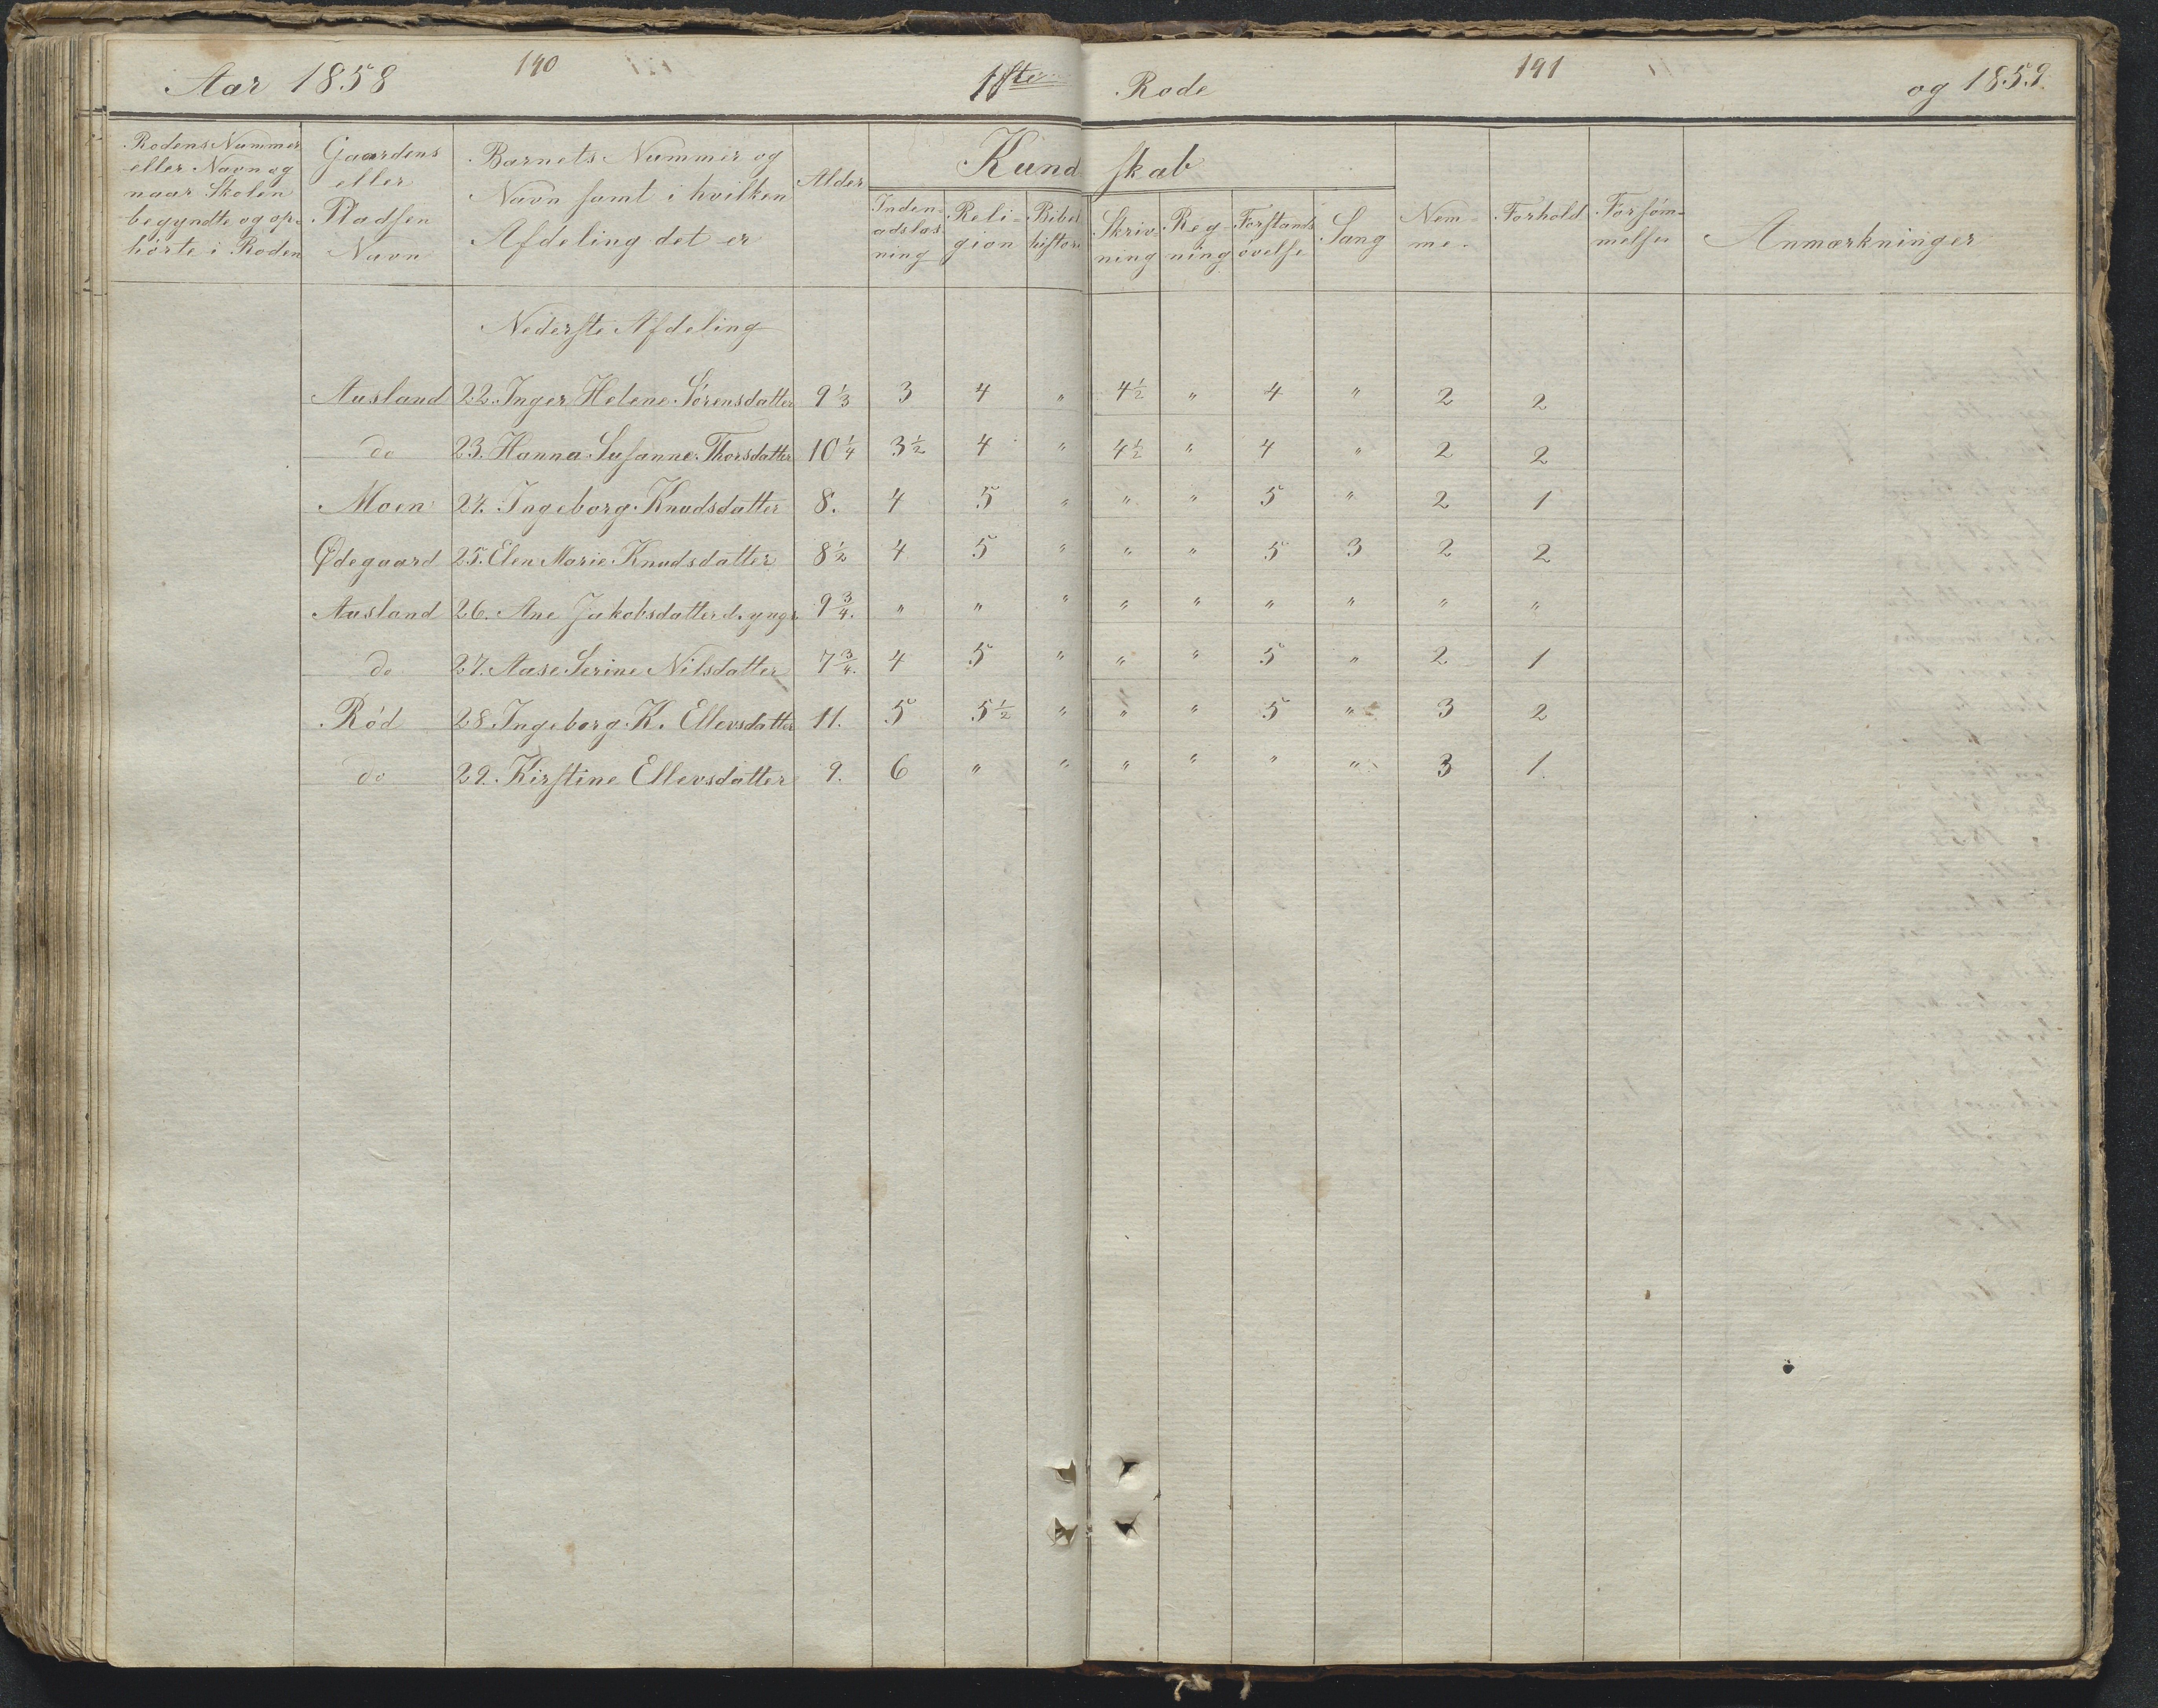 190
191
Aar 1858 1ste Rode og 1859.
Rodens Nummer eller Navn og naar Skolen begyndte og ophörte i Roden
Gaardens eller Pladsen Navn
Barnets Nummer og Navn samt i hvilken Afdeling det er
Alder
Kundskab
Indenadslæsning
Religion
Bibelhistorie
Skrivning
Regning
Forstandsövelse
Sang
Nemme.
Forhold
Forsömmelser
Anmærkninger
Nederste Afdeling
Ausland 22. Inger Helene Sörensdatter 9 1/3 3 4 " 4 1/2 " 4 " 2 2
do 23. Hanna Susanne Thorsdatter 10 1/4 3 1/2 4 " 4 1/2 " 4 " 2 2
Moen 24. Ingeborg Knudsdatter 8. 4 5 " " " 5 " 2 1
Ødegaard 25. Elen Marie Knudsdatter 8 1/2 4 5 " " " 5 3 2 2
Ausland 26. Ane Jakobsdatter d. yngr. 9 3/4. " " " " " " " " "
do 27. Aase Serine Nilsdatter 7 3/4. 4 5 " " " 5 " 2 1
Röd 28. Ingeborg K. Ellevsdatter 11. 5 5 1/2 " " " 5 " 3 2
do 29. Kirstine Ellevsdatter 9. 6 " " " " " " 3 1